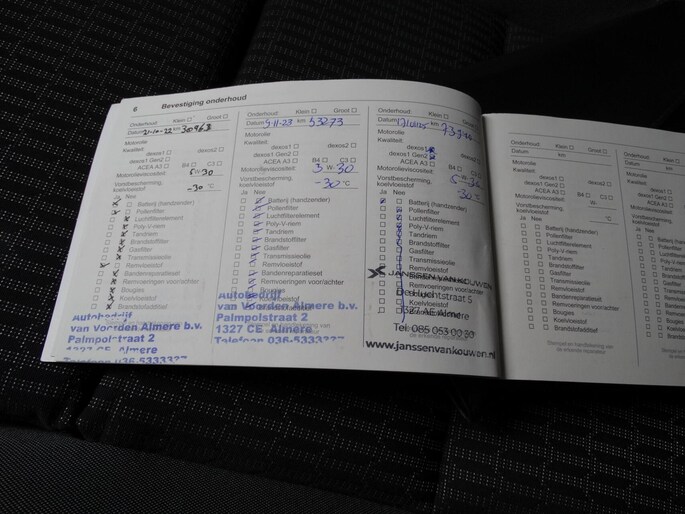 6 Bevestiging onderhoud
Onderhoud: Klein Groot
Datum 21-10-22 km 30963
Motorolie
Kwaliteit:
dexos1 dexos2
dexos1 Gen2
ACEA A3 B4 C3
Motorolieviscositeit:
5-W-30
Vorstbescherming,
koelvloeistof -30 °C
Ja Nee
Batterij (handzender)
Pollenfilter
Luchtfilterelement
Poly-V-riem
Tandriem
Brandstoffilter
Gasfilter
Transmissieolie
Remvloeistof
Bandenreparatieset
Remvoeringen voor/achter
Bougies
Koelvloeistof
Brandstofadditief
Autobedrijf
van Voorden Almere b.v.
Palmpolstraat 2
1327 CE Almere
Telefoon 036-5333327
Onderhoud: Klein Groot
Datum 9-11-23 km 53273
Motorolie
Kwaliteit:
dexos1 dexos2
dexos1 Gen2
ACEA A3 B4 C3
Motorolieviscositeit: W-30
Vorstbescherming,
koelvloeistof -30 °C
Ja Nee
Batterij (handzender)
Pollenfilter
Luchtfilterelement
Poly-V-riem
Tandriem
Brandstoffilter
Gasfilter
Transmissieolie
Remvloeistof
Bandenreparatieset
Remvoeringen voor/achter
Bougies
Autobedrijf
van Voorden Almere b.v.
Palmpolstraat 2
1327 CE Almere
Telefoon 036-5333327
Onderhoud: Klein Groot
Datum km
Motorolie
Kwaliteit:
dexos1 dexos2
dexos1 Gen2
ACEA A3 B4 C3
Motorolieviscositeit:
5-W-30
Vorstbescherming,
koelvloeistof 30 °C
Ja Nee
Batterij (handzender)
Pollenfilter
Luchtfilterelement
Poly-V-riem
Tandriem
Brandstoffilter
Gasfilter
Transmissieolie
Remvloeistof
JANSSEN VAN KOUWEN
Remvoeringen voor/achter
Koelvloeistof
1327 AE Almere
Tel. 085 053 00 30
www.janssenvankouwen.nl
Onderhoud: Klein Groot
Datum km
Motorolie
Kwaliteit:
dexos1 dexos2
dexos1 Gen2
ACEA A3 B4 C3
Motorolieviscositeit:
W-
Vorstbescherming,
koelvloeistof °C
Ja Nee
Batterij (handzender)
Pollenfilter
Luchtfilterelement
Poly-V-riem
Tandriem
Brandstoffilter
Gasfilter
Transmissieolie
Remvloeistof
Bandenreparatieset
Remvoeringen voor/achter
Bougies
Koelvloeistof
Brandstofadditief
Stempel en handtekening van
de erkende reparateur
Onderhoud:
Datum km
Motorolie
Kwaliteit:
dexos1
dexos1 Gen2
ACEA A3
Motorolieviscositeit:
Vorstbescherming,
koelvloeistof
Ja Nee
Batterij
Pollenfilter
Luchtfilterelement
Poly-V-riem
Tandriem
Brandstoffilter
Gasfilter
Transmissieolie
Remvloeistof
Bandenreparatieset
Remvoeringen
Bougies
Koelvloeistof
Brandstofadditief